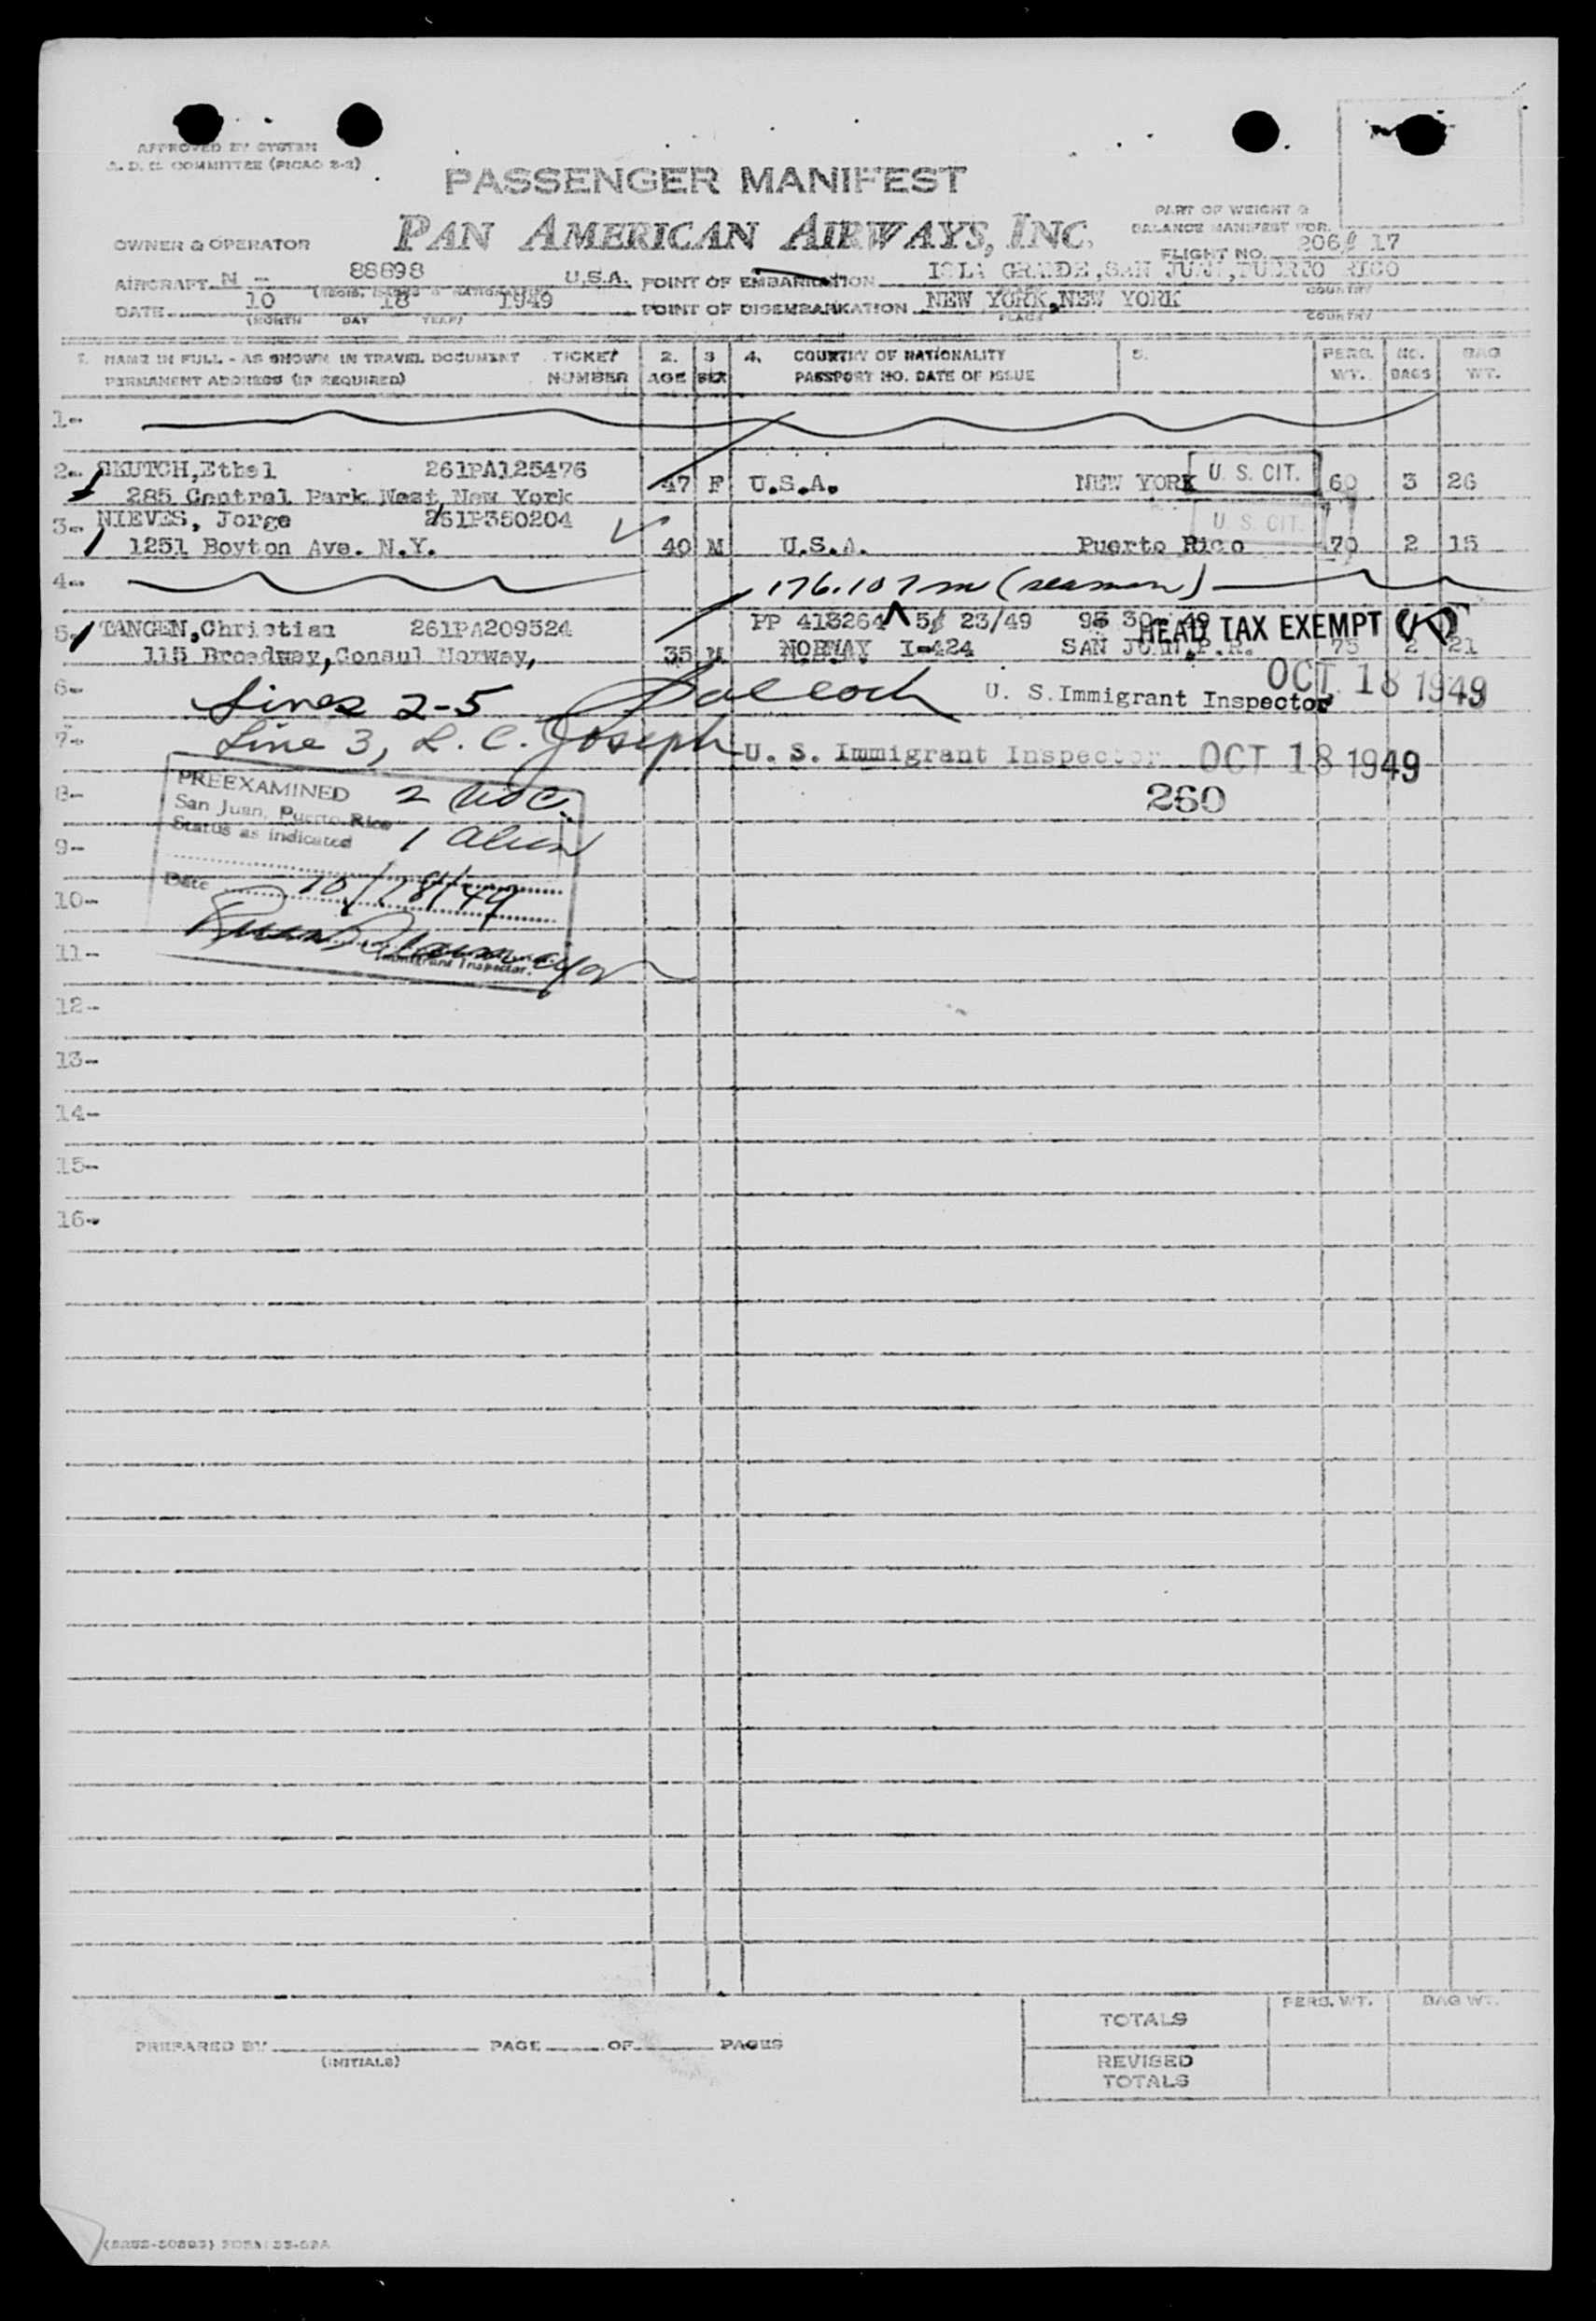 APPROVED BY SYSTEM
A. D. C. COMMITTEE (PICAO 2-2)
PASSENGER MANIFEST
PAN AMERICAN AIRWAYS, INC.
PART OF WEIGHT &
BALANCE MANIFEST FOR.
OWNER & OPERATOR
FLIGHT NO. 206/ 17
AIRCRAFT N - 88898 U.S.A. POINT OF EMBARKATION ISLA GRANDE, SAN JUAN, PUERTO RICO
COUNTRY
DATE 10 18 1949 POINT OF DISEMBARKATION NEW YORK, NEW YORK
(MONTH DAY YEAR) PLACE COUNTRY
1. NAME IN FULL - AS SHOWN IN TRAVEL DOCUMENT TICKET 2. 3 4. COUNTRY OF NATIONALITY 5. PERS. NO. BAG
PERMANENT ADDRESS (IF REQUIRED) NUMBER AGE SEX PASSPORT NO. DATE OF ISSUE WT. BAGS WT.
1-
2- SKUTCH, Ethel 261PA125476
285 Central Park West, New York 47 F U.S.A. NEW YORK U. S. CIT. 60 3 26
3- NIEVES, Jorge 261P350204 U. S. CIT.
1251 Boyton Ave. N.Y. 40 M U.S.A. Puerto Rico 70 2 15
4- 176.107 m (seaman)
5- TANGEN, Christian 261PA209524 PP 413264 5/ 23/49 9 30 49 HEAD TAX EXEMPT
115 Broadway, Consul Norway, 35 M NORWAY I-424 SAN JUAN, P.R. 75 2 21
6- Lines 2-5 U. S. Immigrant Inspector OCT 18 1949
7- Line 3, L. C. Joseph U. S. Immigrant Inspector OCT 18 1949
8- PREEXAMINED 2 USC 260
San Juan, Puerto Rico
9- Status as indicated 1 alien
Date 10/18/49
10-
11- Immigrant Inspector.
12-
13-
14-
15-
16-
PERS. WT. BAG WT.
TOTALS
PREPARED BY PAGE OF PAGES
(INITIALS)
REVISED
TOTALS